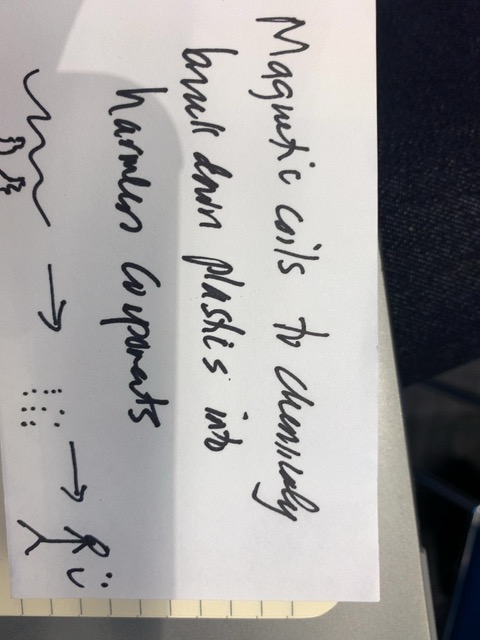 Magnetic coils to chemically
break down plastics into
harmless components